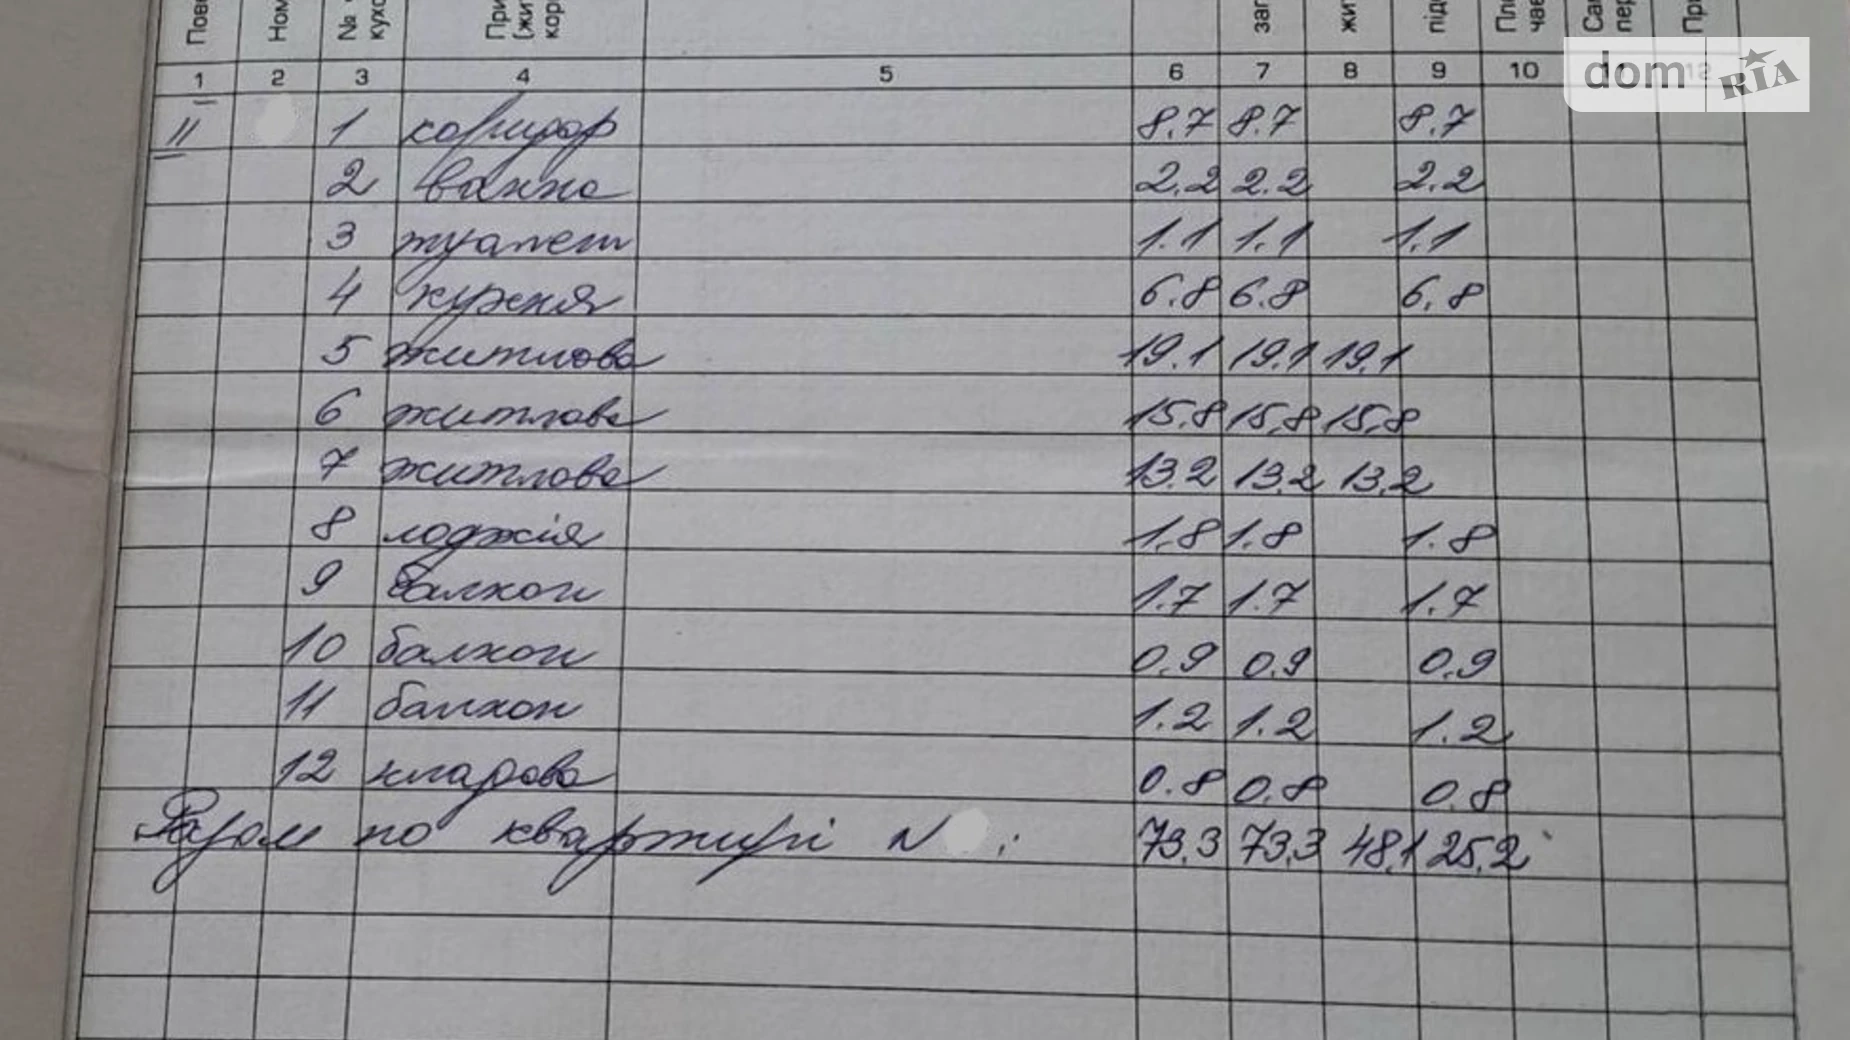 Пов Ном № кухо При (жит кор заг жит під Пло час Сам пер При
1 2 3 4 5 6 7 8 9 10 11 12
dom RIA
11 1 коридор 8.7 8.7 8.7
2 ванна 2.2 2.2 2.2
3 туалет 1.1 1.1 1.1
4 кухня 6.8 6.8 6.8
5 житлова 19.1 19.1 19.1
6 житлова 15.8 15.8 15.8
7 житлова 13.2 13.2 13.2
8 лоджія 1.8 1.8 1.8
9 балкон 1.7 1.7 1.7
10 балкон 0.9 0.9 0.9
11 балкон 1.2 1.2 1.2
12 кладова 0.8 0.8 0.8
Разом по квартирі N : 73.3 73.3 48.1 25.2